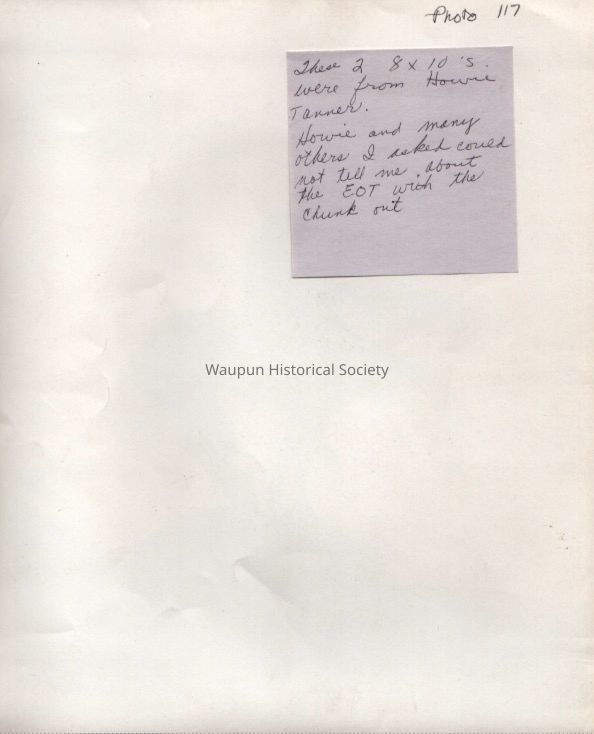 Photo 117
These 2 8 x 10's.
were from Howie
Tanner.
Howie and many
others I asked could
not tell me about
the EOT with the
chunk out
Waupun Historical Society